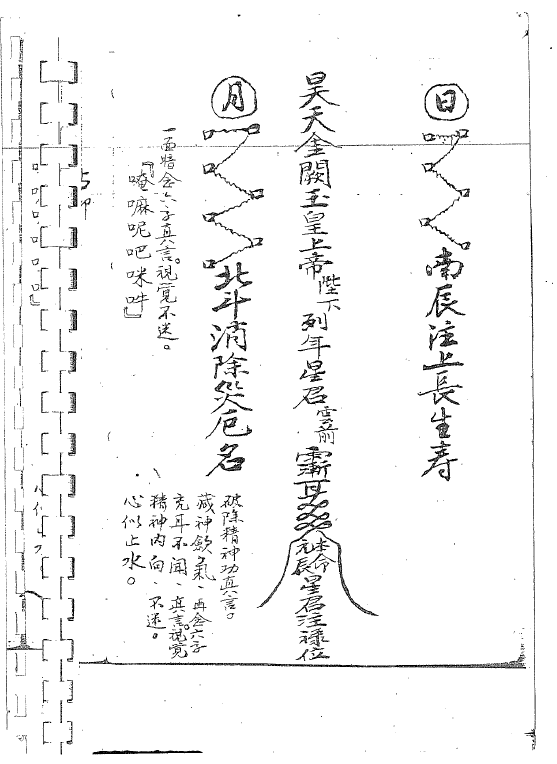 日
南辰注上長生寿
昊天金闕玉皇上帝陛下列年星君
本命元辰星君注祿位
月
北斗消除災厄名
破除精神功真言。
藏神歛氣、再念六字
充耳不聞、真言。視覺
精神內向、不迷。
心似止水。
一面暗念六字真言。視覺不迷。
『唵嘛呢吧咪吽』